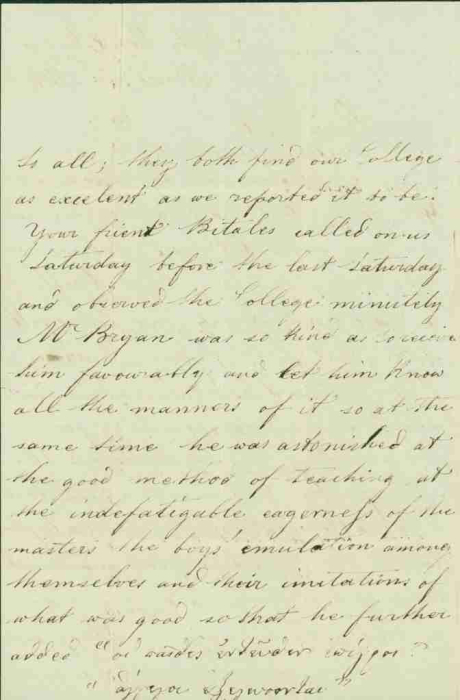 to all; they both find our College
as excelent as we reported it to be.
Your frient Bitales called on us
Saturday before the last Saturday
and observed the College minutely
Mr Bryan was so kind as to receive
him favourably and let him know
all the manners of it so at the
same time he was astonished at
the good method of teaching at
the indefatigable eagerness of the
masters the boys' emulation among
themselves and their imitations of
what was good so that he further
added "οἱ παῖδες ἐντεῦθεν